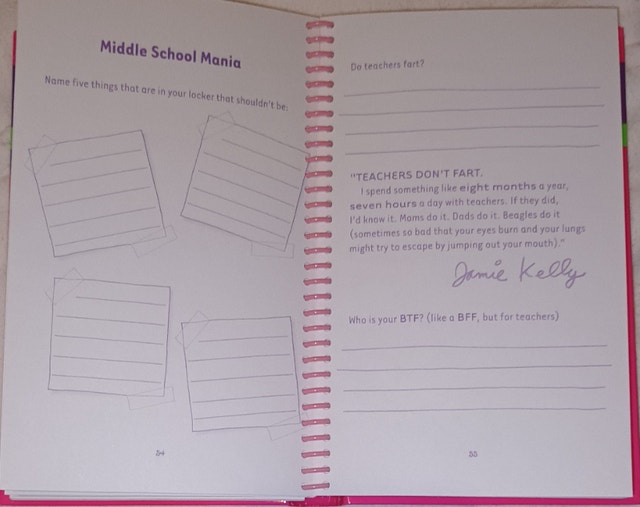 Middle School Mania
Name five things that are in your locker that shouldn't be:
54
Do teachers fart?
"TEACHERS DON'T FART.
I spend something like eight months a year,
seven hours a day with teachers. If they did,
I'd know it. Moms do it. Dads do it. Beagles do it
(sometimes so bad that your eyes burn and your lungs
might try to escape by jumping out your mouth)."
Jamie Kelly
Who is your BTF? (like a BFF, but for teachers)
55